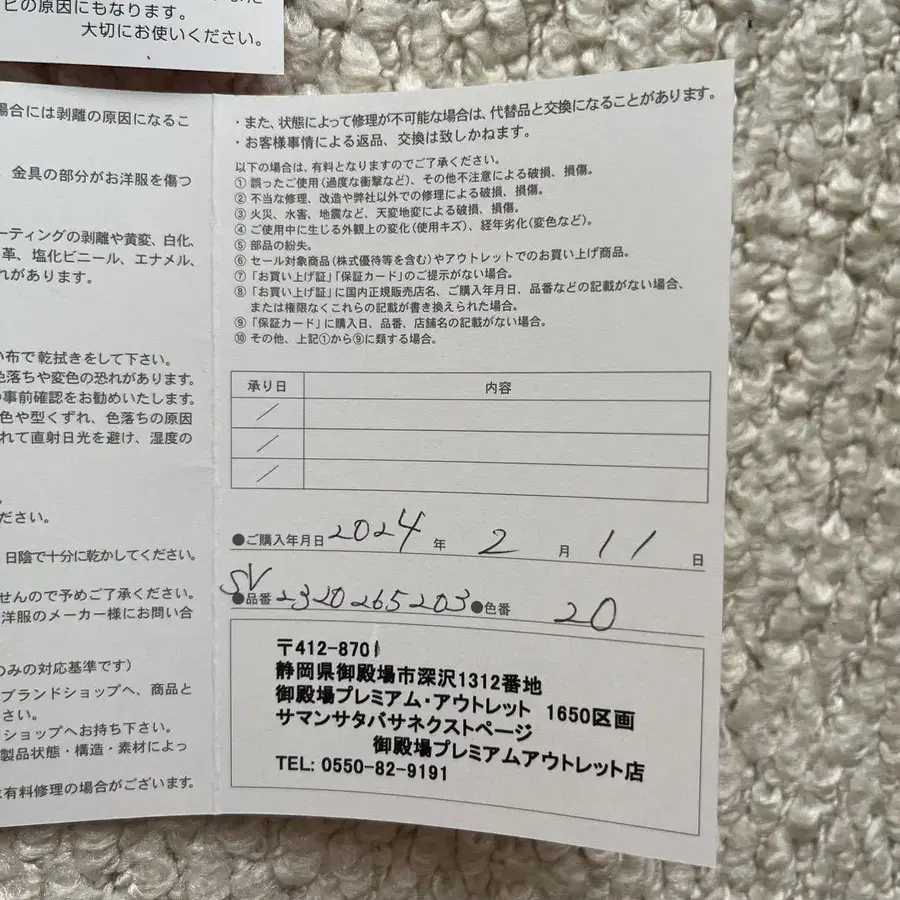 ビの原因にもなります。
大切にお使いください。
場合には剥離の原因になるこ
、金具の部分がお洋服を傷つ
ーティングの剥離や黄変、白化、
革、塩化ビニール、エナメル、
れがあります。
い布で乾拭きをして下さい。
色落ちや変色の恐れがあります。
事前確認をお勧めいたします。
色や型くずれ、色落ちの原因
れて直射日光を避け、湿度の
ださい。
日陰で十分に乾かしてください。
せんので予めご了承ください。
洋服のメーカー様にお問い合
のみの対応基準です)
ブランドショップへ、商品と
さい。
ショップへお持ち下さい。
製品状態・構造・素材によっ
は有料修理の場合がございます。
・また、状態によって修理が不可能な場合は、代替品と交換になることがあります。
・お客様事情による返品、交換は致しかねます。
以下の場合は、有料となりますのでご了承ください。
①誤ったご使用(過度な衝撃など)、その他不注意による破損、損傷。
②不当な修理、改造や弊社以外での修理による破損、損傷。
③火災、水害、地震など、天変地変による破損、損傷。
④ご使用中に生じる外観上の変化(使用キズ)、経年劣化(変色など)。
⑤部品の紛失。
⑥セール対象商品(株式優待等を含む)やアウトレットでのお買い上げ商品。
⑦「お買い上げ証」「保証カード」のご提示がない場合。
⑧「お買い上げ証」に国内正規販売店名、ご購入年月日、品番などの記載がない場合、
または権限なくこれらの記載が書き換えられた場合。
⑨「保証カード」に購入日、品番、店舗名の記載がない場合。
⑩その他、上記①から⑨に類する場合。
承り日 内容
／
／
／
●ご購入年月日 2024 年 2 月 11 日
SV
●品番 2320265203 ●色番 20
〒412-8701
静岡県御殿場市深沢1312番地
御殿場プレミアム・アウトレット 1650区画
サマンサタバサネクストページ
御殿場プレミアムアウトレット店
TEL: 0550-82-9191